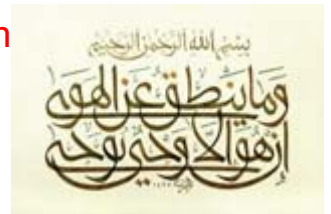 n
بسم الله الرحمن الرحيم
وما ينطق عن الهوى
إن هو إلا وحي يوحى